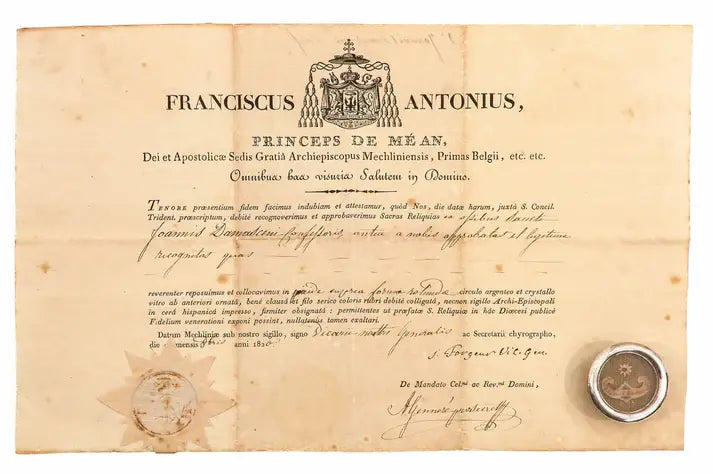 FRANCISCUS ANTONIUS,
PRINCEPS DE MÉAN,
Dei et Apostolicæ Sedis Gratiâ Archiepiscopus Mechliniensis, Primas Belgii, etc. etc.
Omnibus hæc visuris Salutem in Domino.
TENORE præsentium fidem facimus indubiam et attestamur, quòd Nos, die datæ harum, juxtà S. Concil.
Trident. præscriptum, debitè recognoverimus et approbaverimus Sacras Reliquias ex ossibus Sancti
Joannis Damasceni Confessoris, antea a nobis approbatas et legitime
recognitas quas
reverenter reposuimus et collocavimus in forma rotunda circulo argenteo et crystallo
vitro ab anteriori ornatâ, benè clausâ et filo serico coloris rubri debitè colligatâ, necnon sigillo Archi-Episcopali
in cerâ hispanicâ impresso, firmiter obsignatâ : permittentes ut præfatæ S. Reliquiæ in hâc Diœcesi publicè
Fidelium venerationi exponi possint, nullatenùs tamen exaltari.
Datum Mechliniæ sub nostro sigillo, signo Vicarii nostri Generalis ac Secretarii chyrographo,
die mensis 8bris anni 1826
J. Forgeur Vic. Gen.
De Mandato Cel.mi ac Rev.mi Domini,